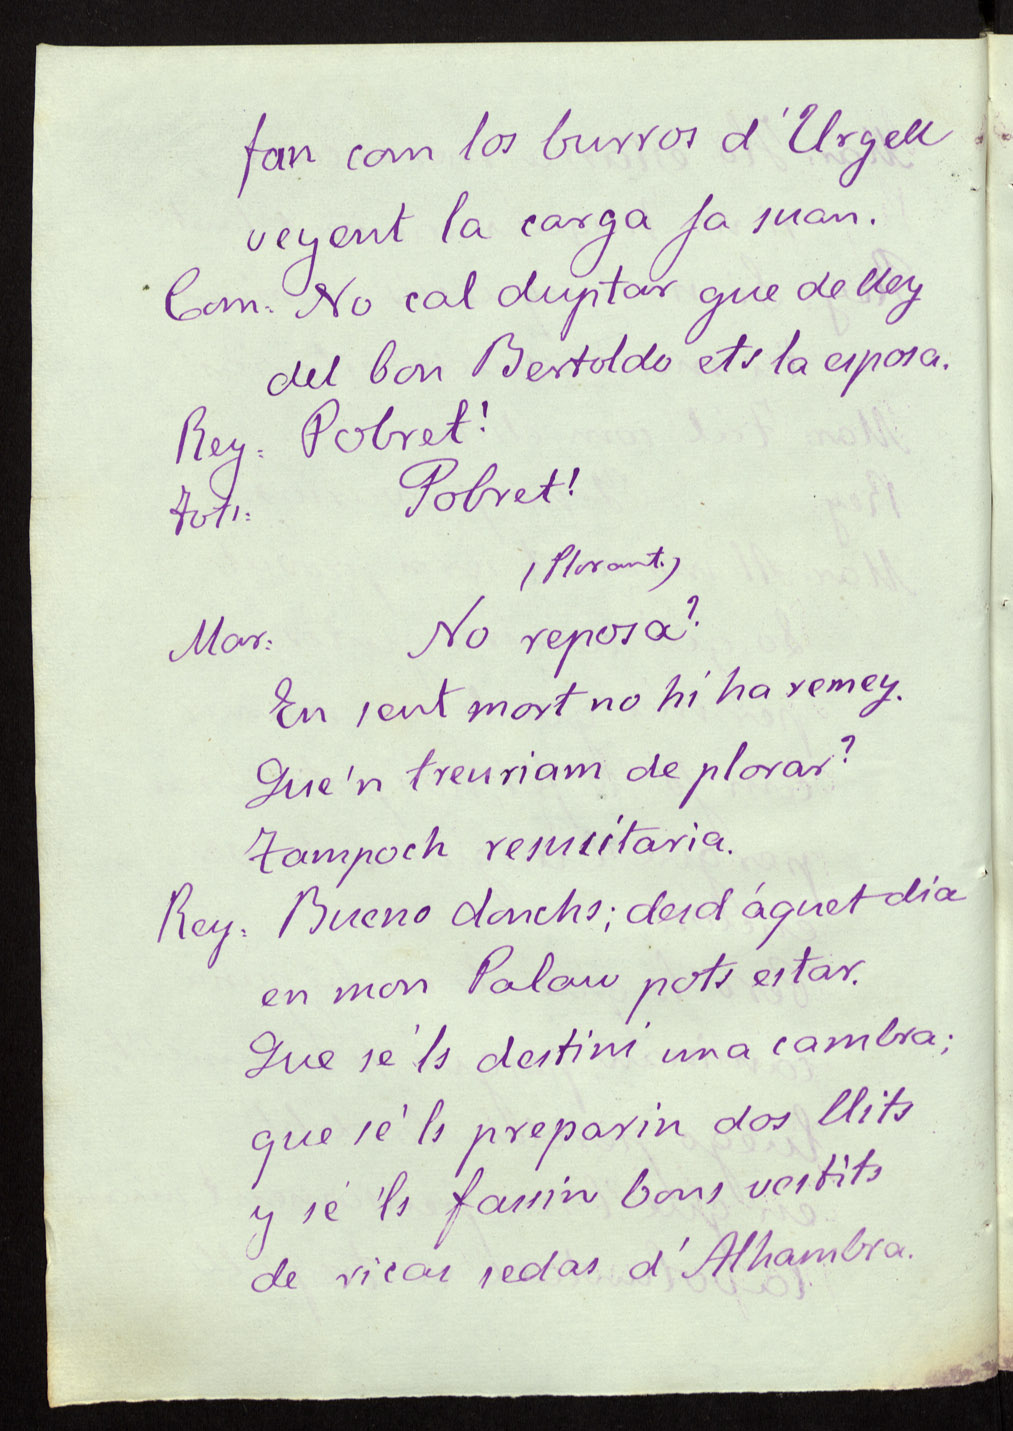 fan com los burros d'Urgell
veyent la carga ja suan.
Com: No cal duptar que de lley
del bon Bertoldo ets la esposa.
Rey: Pobret!
Tots: Pobret!
(Plorant.)
Mar: No reposa?
En sent mort no hi ha remey.
Que'n treuriam de plorar?
Tampoch resucitaria.
Rey: Bueno donchs; desd'aquet día
en mon Palau pots estar.
Que se'ls destini una cambra;
que se'ls preparin dos llits
y se'ls fassin bons vestits
de ricas sedas d'Alhambra.